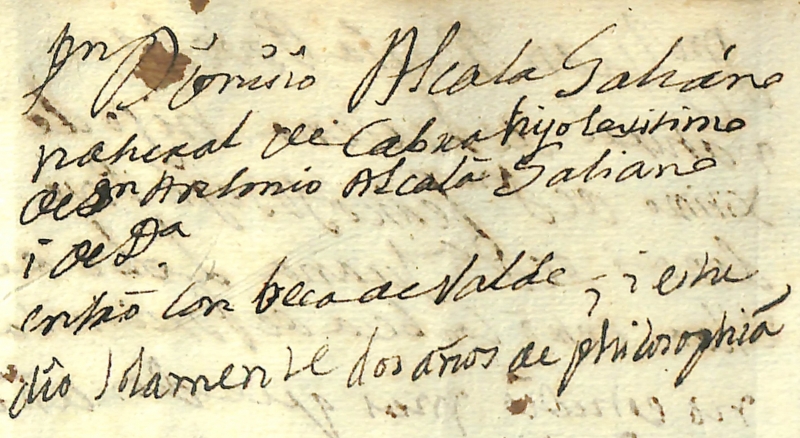 Dn Dionisio Alcala Galiáno
natural de Cabra hijo lexitimo
de Dn Antonio Alcalá Galiano
i de Da
entró con beca de Valde, i estu
dio solamente dos años de philosophia